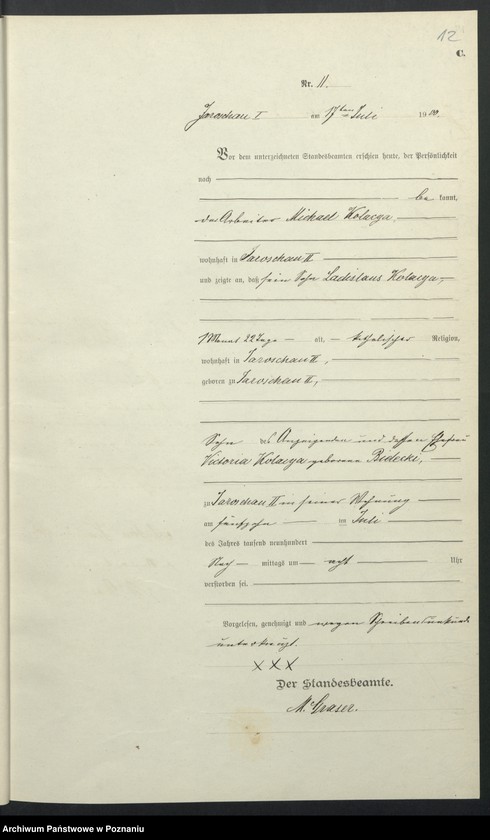 12
C.
Nr. 11.
Jaroschau I am 17ten Juli 1900.
Vor dem unterzeichneten Standesbeamten erschien heute, der Persönlichkeit
nach
be kannt,
der Arbeiter Michael Kolacza
wohnhaft in Jaroschau II
und zeigte an, daß sein Sohn Ladislaus Kolacza,
1 Monat 22 Tage alt, katholischer Religion,
wohnhaft in Jaroschau II,
geboren zu Jaroschau II,
Sohn des Anzeigenden und dessen Ehefrau
Victoria Kolacza geborene Bidecki,
zu Jaroschau II in seiner Wohnung
am fünfzehn ten Juli
des Jahres tausend neunhundert
Nach mittags um acht Uhr
verstorben sei.
Vorgelesen, genehmigt und wegen Schreibensunkunde
unterkreuzt.
XXX
Der Standesbeamte.
Archiwum Państwowe w Poznaniu